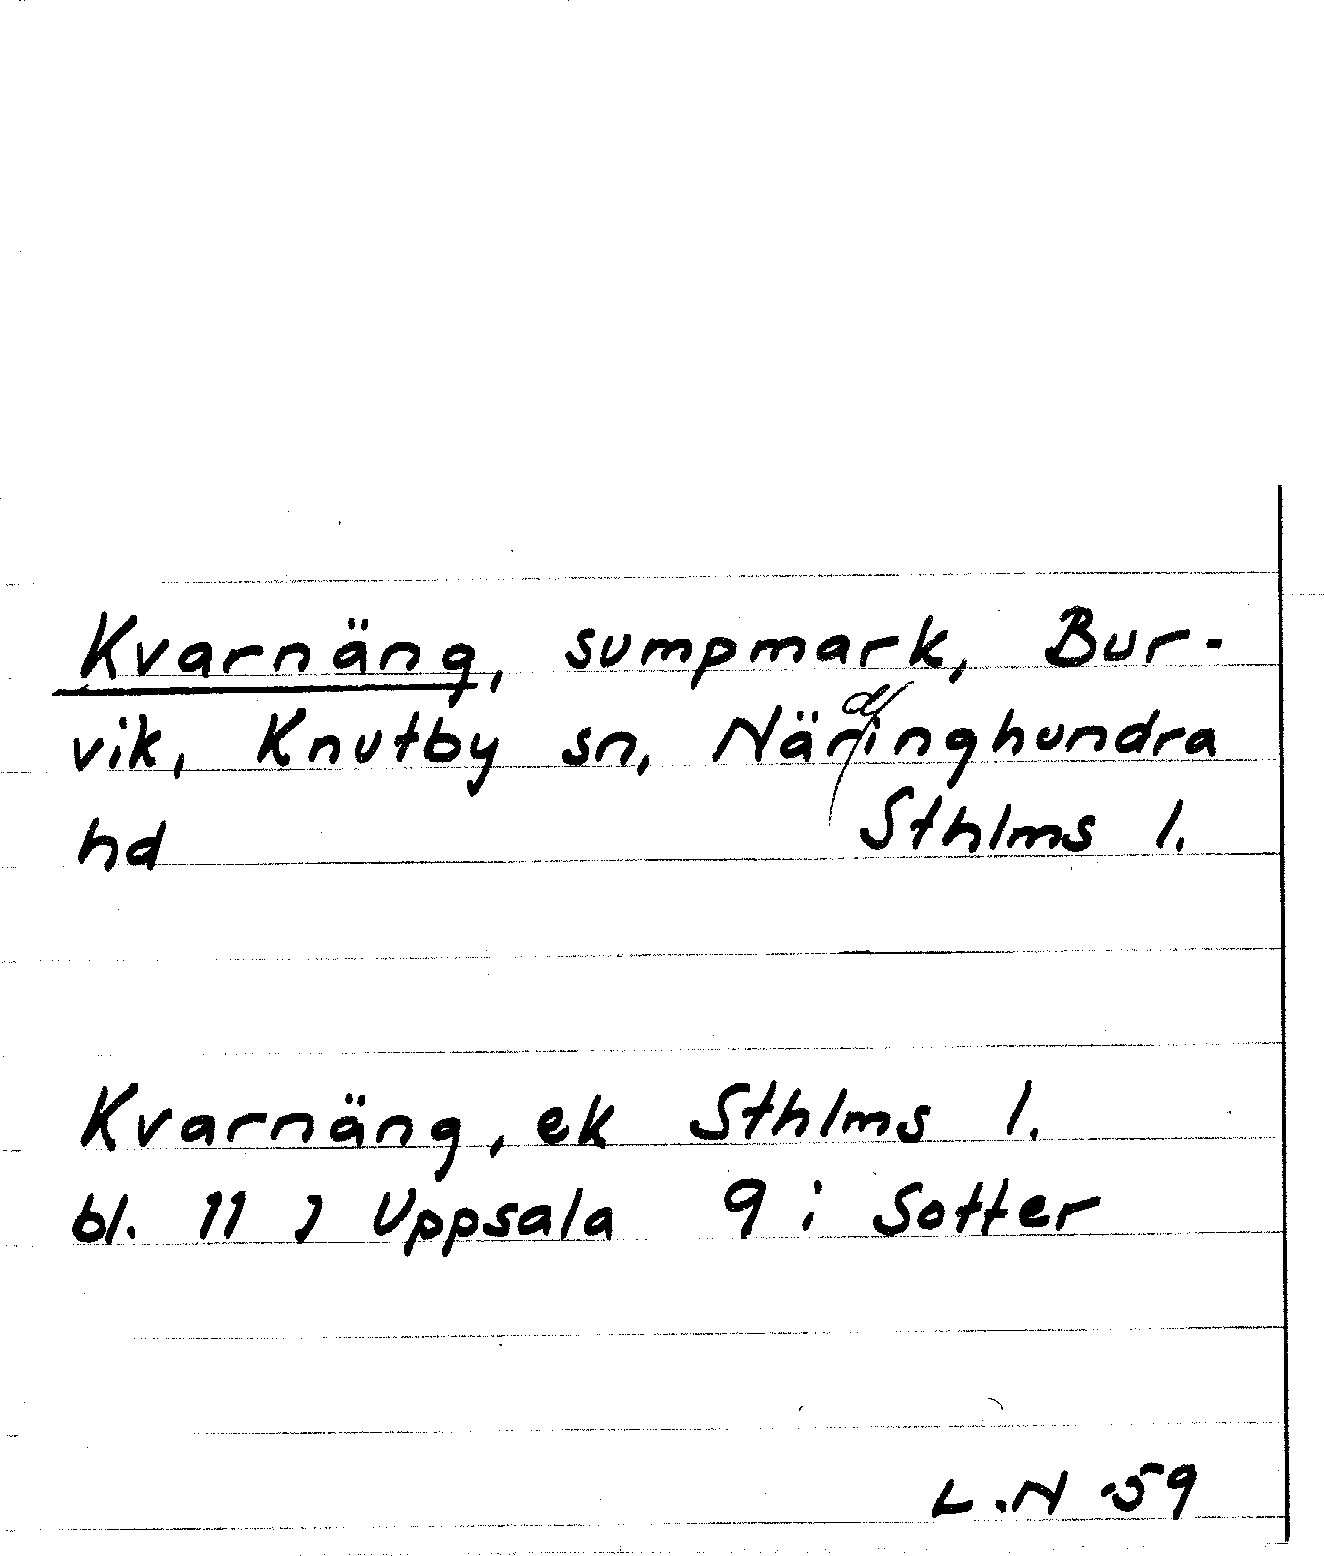 Kvarnäng, sumpmark, Bur-
vik, Knutby sn, Näringhundra
hd Sthlms l.
Kvarnäng, ek Sthlms l.
bl. 11 J Uppsala 9 i Sotter
L.N -59